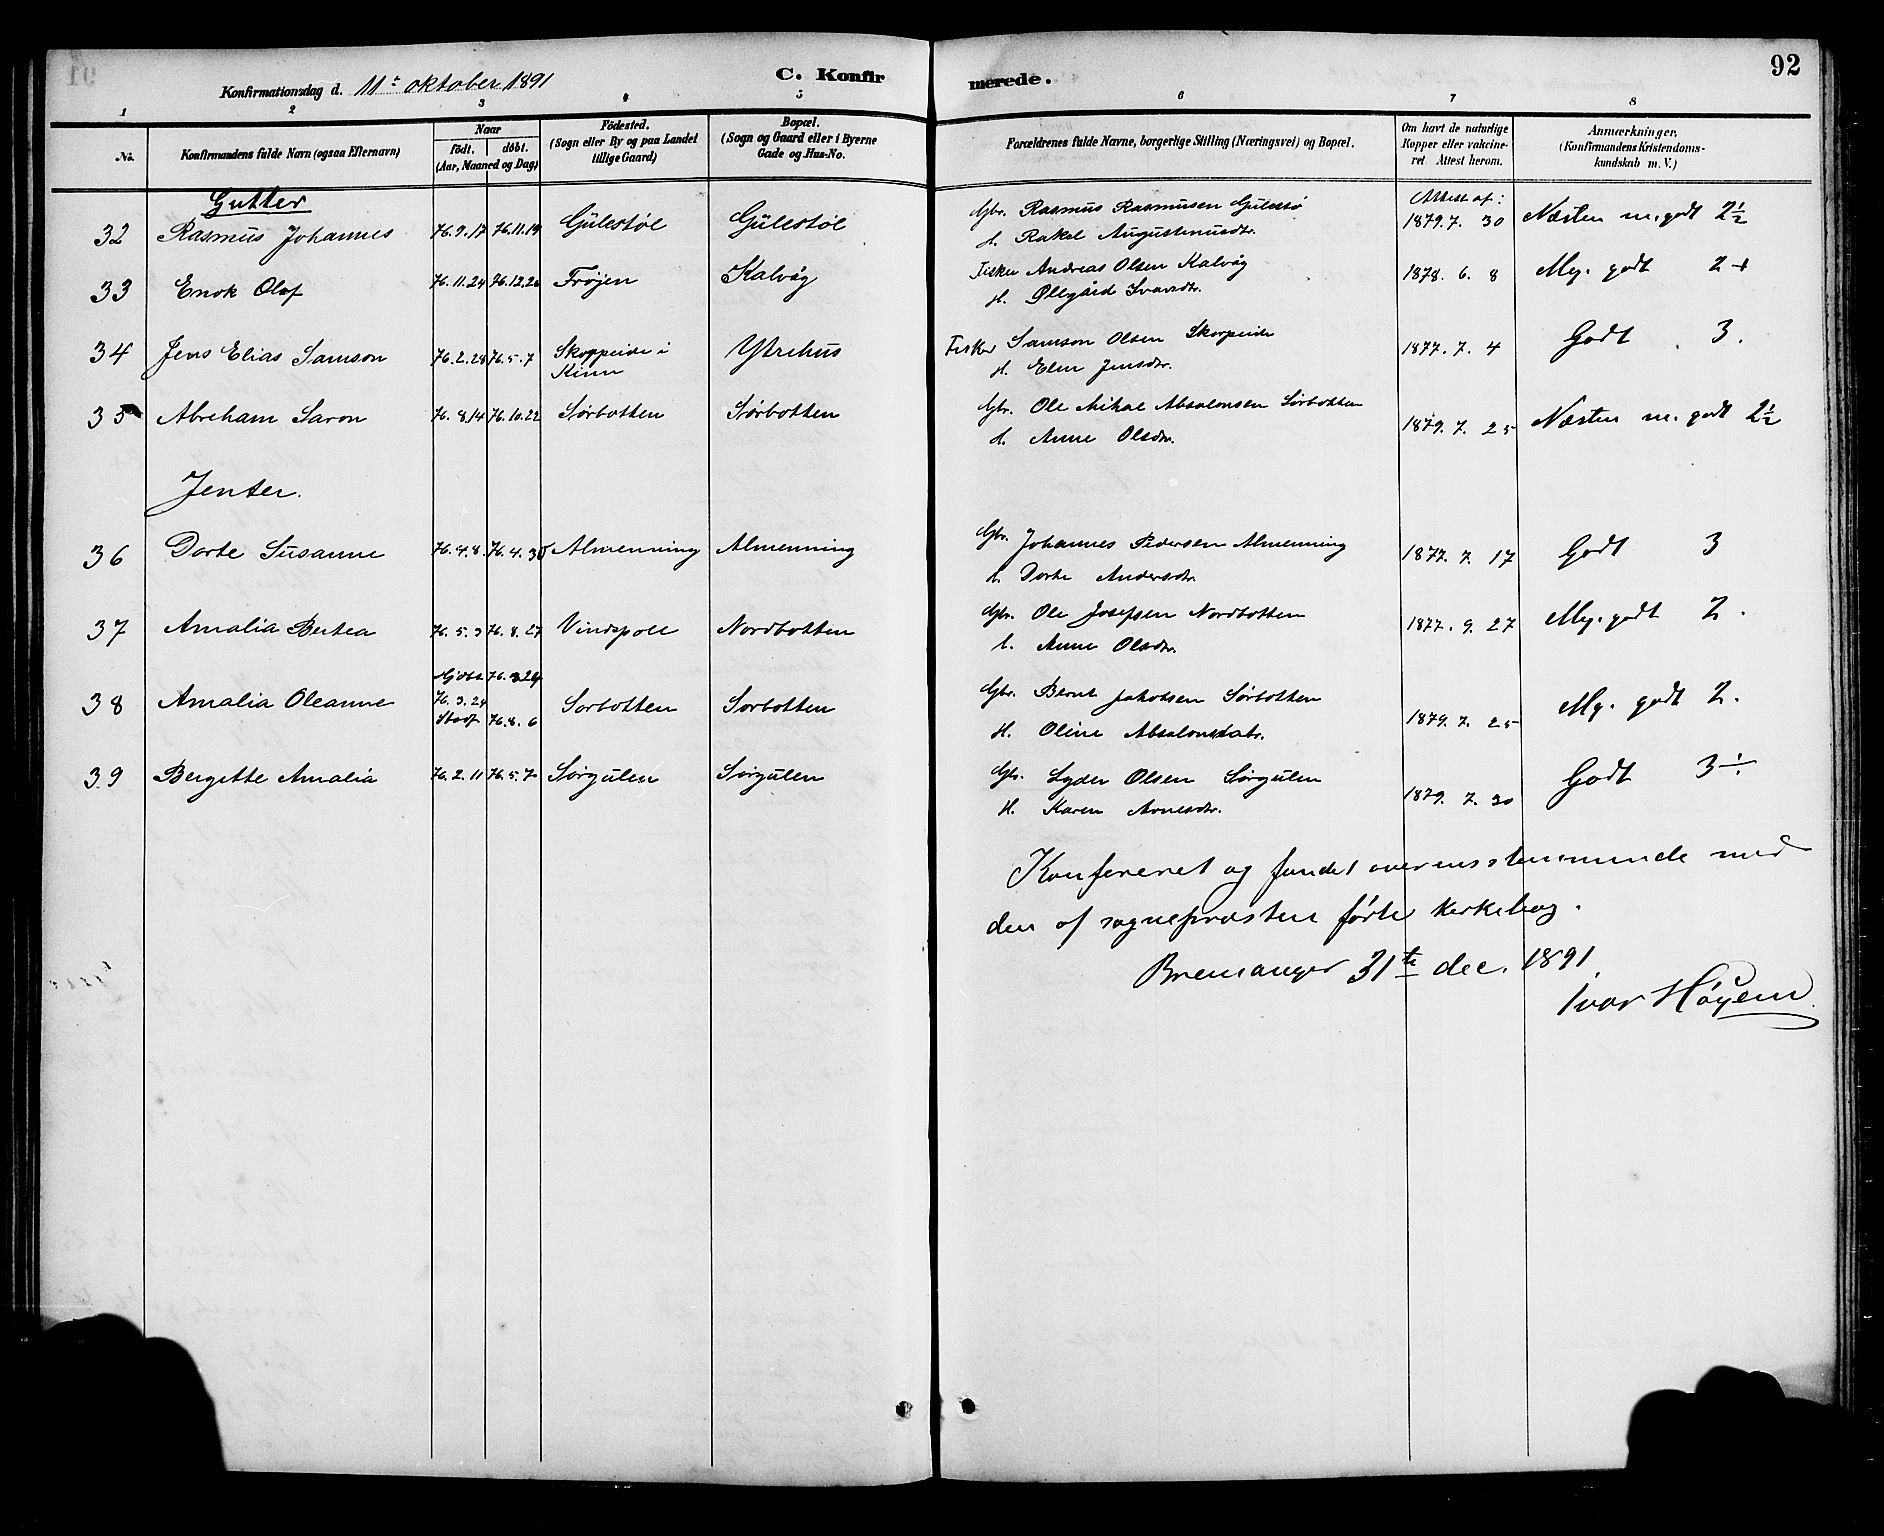 92
Konfirmationsdag d. 11te oktober 1891
C. Konfirmerede.
1 2 3 4 5 6 7 8
No.
Konfirmandens fulde Navn (ogsaa Efternavn)
Naar
födt. döbt.
(Aar, Maaned og Dag)
Födested.
(Sogn eller By og paa Landet
tillige Gaard)
Bopæl.
(Sogn og Gaard eller i Byerne
Gade og Hus-No.
Forældrenes fulde Navne, borgerlige Stilling (Næringsvei) og Bopæl.
Om havt de naturlige
Kopper eller vakcine-
ret Attest herom.
Anmærkninger.
(Konfirmandens Kristendoms-
kundskab m. V.)
Gutter
32 Rasmus Johannes 76.9.17 76.11.19 Gulestöl Gulestöl Gbr. Rasmus Rasmusen Gulestö Attest af: 1879.7.30 Næsten m. godt 2½
H. Rakel Augustinusdtr.
33 Enok Olaf 76.11.24 76.12.26 Frøjen Kalvåg Fisker Andreas Olsen Kalvåg 1878.6.8 Mg. godt 2+
H. Øllegård Ivarsdtr.
34 Jens Elias Samson 76.2.28 76.5.7 Skoppeide i Ytrehus Fisker Samson Olsen Skorpeide 1877.7.4 Godt 3.
Kinn H. Elen Jensdtr.
35 Abreham Saron 76.8.14 76.10.22 Sørbotten Sørbotten Gbr. Ole Mikal Absalonsen Sørbotten 1879.7.25 Næsten m. godt 2½
H. Anne Olsdtr.
Jenter.
36 Dorte Susanne 76.4.8. 76.4.30 Almenning Almenning Gbr. Johannes Pedersen Almenning 1877.7.17 Godt 3
H. Dorte Andersdtr.
37 Amalia Bertea 76.5.3 76.8.27 Vindspoll Nordbotten Gbr. Ole Josefsen Nordbotten 1877.9.27 Mg. godt 2.
H. Anne Olsdtr.
76.3.24
38 Amalia Oleanne 76.3.24 76.8.6 Sorbotten Sorbotten Gbr. Bernt Jakobsen Sørbotten 1879.7.25 Mg. godt 2.
H. Oline Absalonsdatr.
39 Bergitte Amalia 76.2.11 76.5.7 Sørgulen Sørgulen Gbr. Lyder Olsen Sørgulen 1879.7.30 Godt 3÷
H. Karen Arnesdtr.
Konfereret og fundet overensstemmende med
den af sognepræsten førte kirkebog.
Bremanger 31te dec. 1891.
Ivar Høyem